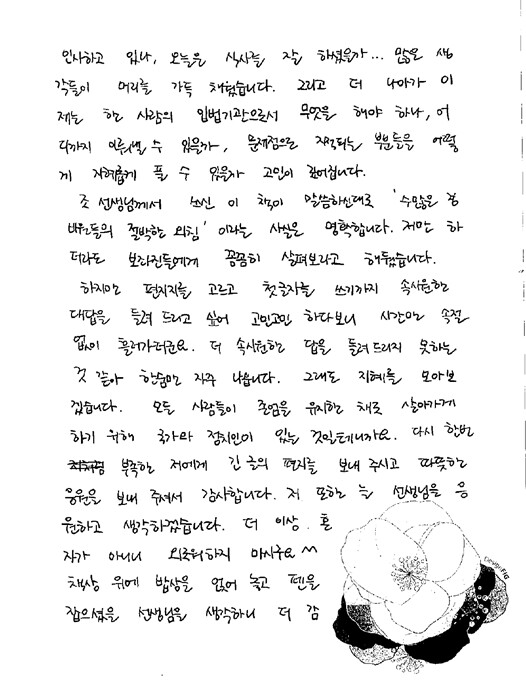 인사하고 있나, 오늘은 식사를 잘 하셨을까... 많은 생
각들이 머리를 가득 채웠습니다. 그리고 더 나아가 이
제는 한 사람의 입법기관으로서 무엇을 해야 하나, 어
디까지 이뤄낼 수 있을까, 문제점으로 지적되는 부분들을 어떻
게 지혜롭게 풀 수 있을까 고민이 깊어집니다.
조 선생님께서 쓰신 이 책이 말씀하신대로 '수많은 장
발장들의 절박한 외침' 이라는 사실은 명확합니다. 저만 하
더라도 보좌진들에게 꼼꼼히 살펴보라고 해뒀습니다.
하지만 편지지를 고르고 첫글자를 쓰기까지 속시원한
대답을 들려 드리고 싶어 고민고민 하다보니 시간만 속절
없이 흘러가더군요. 더 속시원한 답을 들려 드리지 못하는
것 같아 한숨만 자주 나옵니다. 그래도 지혜를 모아보
겠습니다. 모든 사람들이 존엄을 유지한 채로 살아가게
하기 위해 국가와 정치인이 있는 것일테니까요. 다시 한번
부족한 저에게 긴 글의 편지를 보내 주시고 따뜻한
응원을 보내 주셔서 감사합니다. 저 또한 늘 선생님을 응
원하고 생각하겠습니다. 더 이상 혼
자가 아니니 외로워하지 마시구요 ^^
책상 위에 밥상을 엎어 놓고 펜을
잡으셨을 선생님을 생각하니 더 감